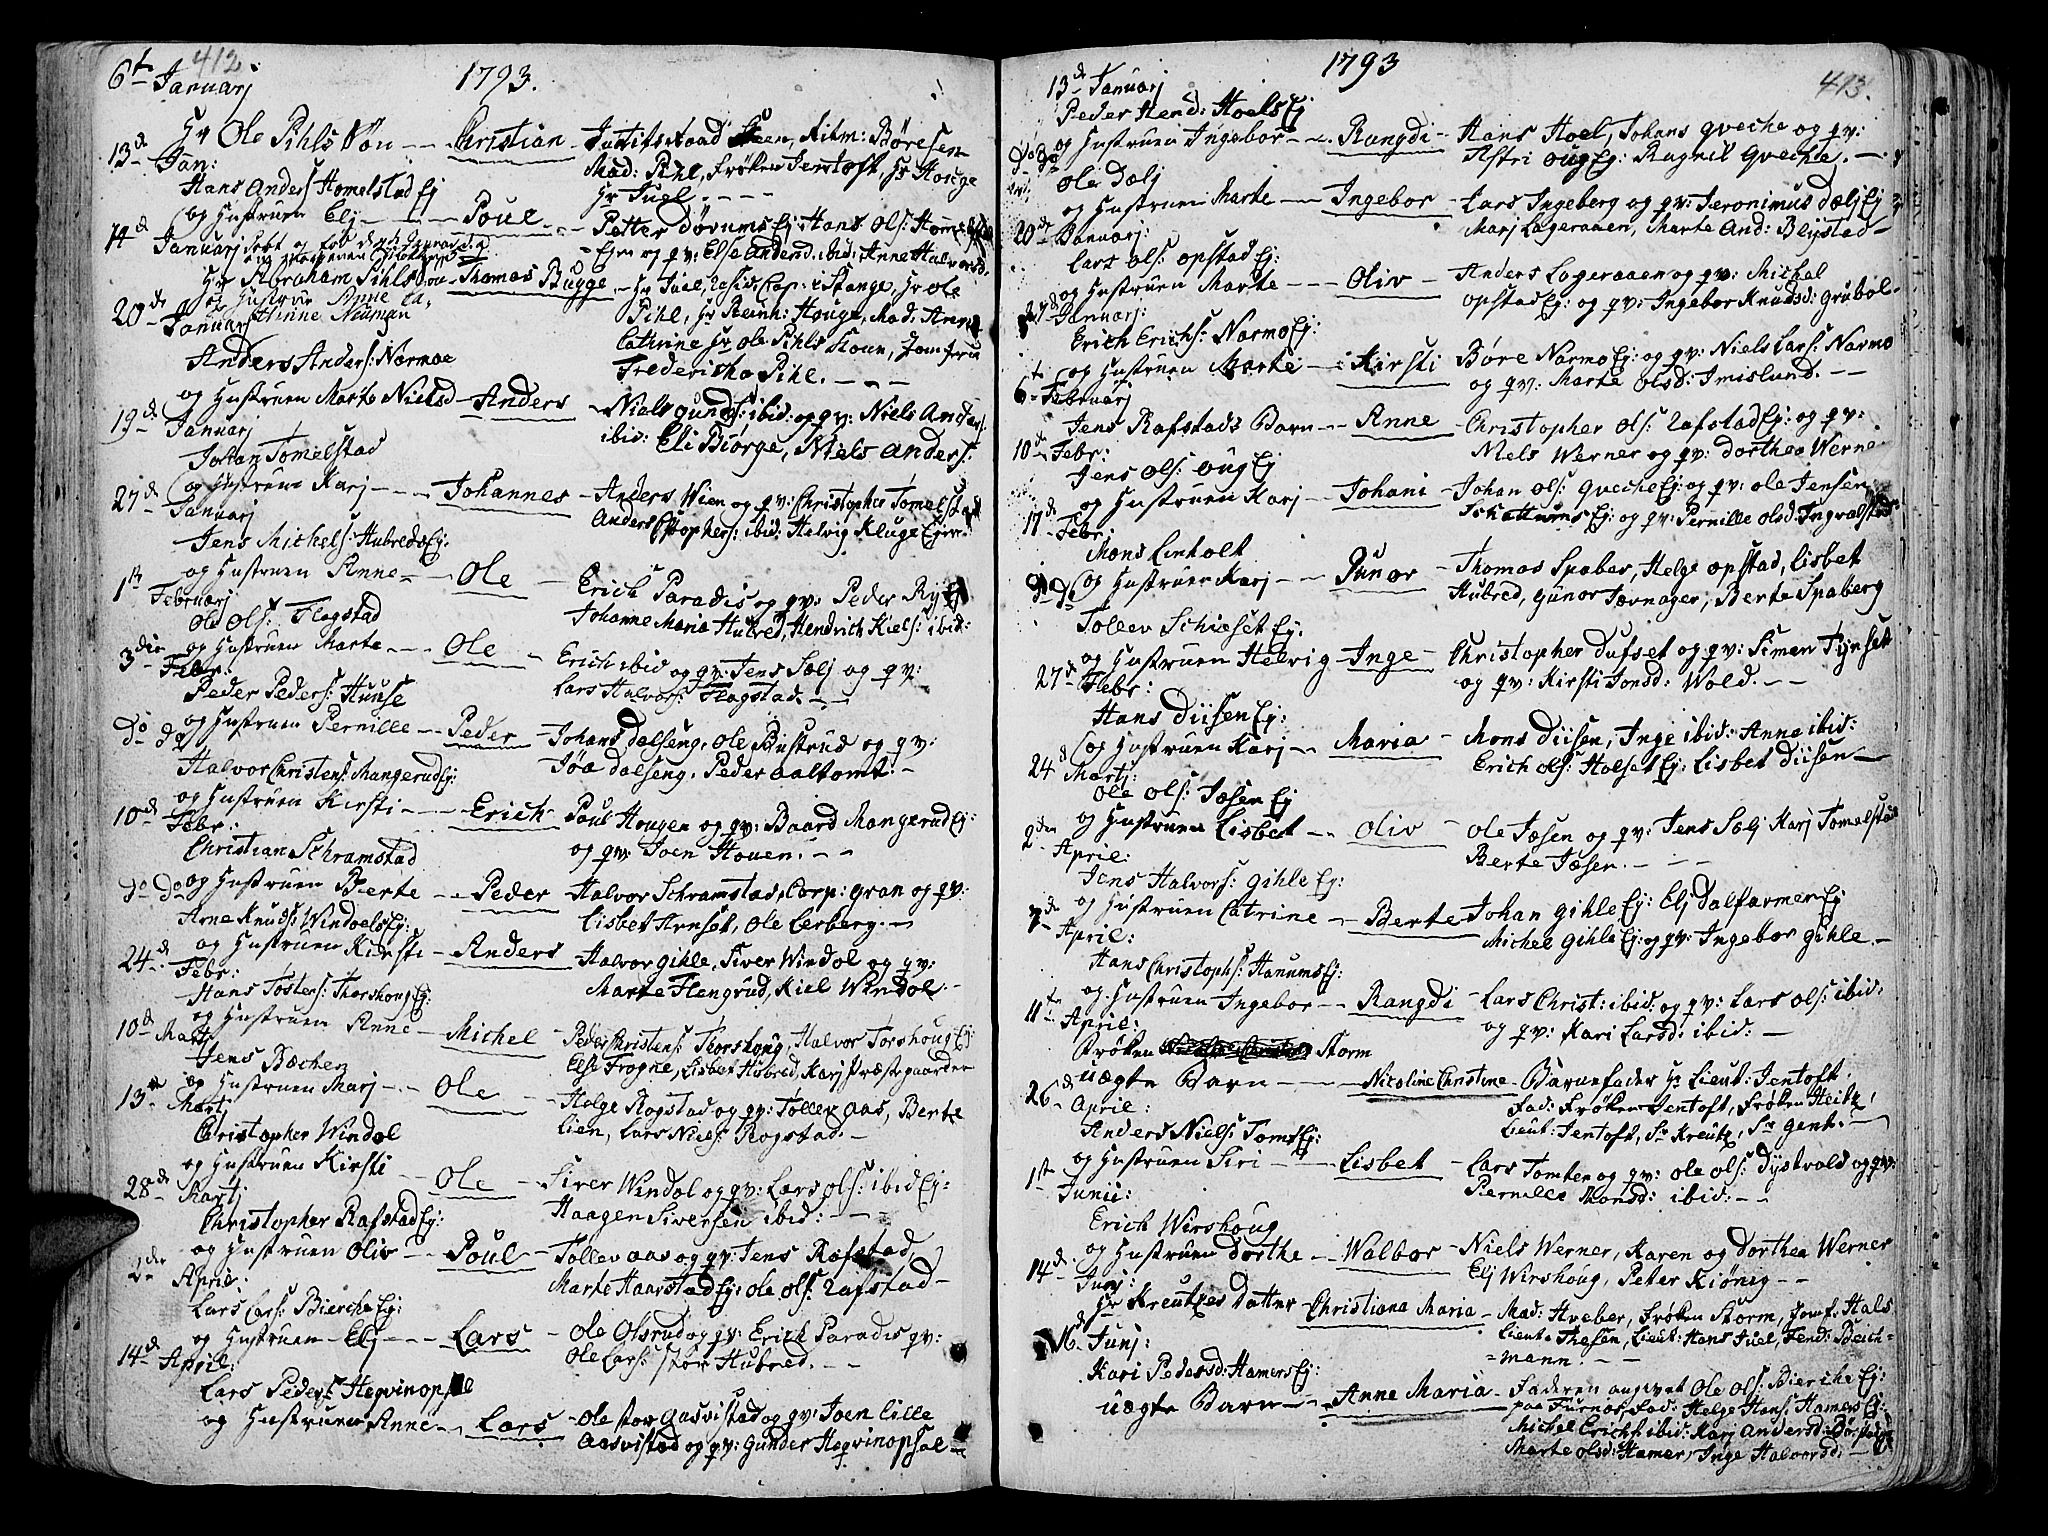 412.
6t Januarj
1793.
Hr Ole Pihls Søn -- Christian
Justitsraad Steen, Ritm: Børesen
Mad: Pihl, Frøken Jentoft, Hr Houge
Hr Juel. - - -
13d Jan:
Hans Anders: Homelstad Ej
og Hustruen Elj - - Poul
Petter Døvums Ej: Hans Ols: Homelstad
Ejer og qv: Else Andersd: ibid: Anne Halvorsd.
14d Januarj
Hr Abraham Pihls Søn Thomas Bugge
og Hustrue Anne Ca-
thrine Neuman
Hr Juel, Resid: Cap: i Stange, Hr Ole
Pihl, Hr Reinh: Houge, Mad: Anne
Cathrine Hr Ole Pihls Koun, Jomfrue
Fredericha Pihl. - - -
20de Januarj
Anders Anders: Narmoe
og Hustruen Marte Nielsd - Anders
Niels Gunds: ibid: og qv: Niels Anders:
ibid: Eli Biørge, Niels Anders:
19d Januarj
Johan Tomelstad
og Hustruen Karj - - - Johannes
Anders Wien og qv: Christopher Tomelstad
Anders Christophers: ibid: Helvig Kluge Ejer.
27d Januarj
Jens Michels: Hubreds Ej:
og Hustruen Anne - Ole
Erich Paradis og qv: Peder Ry Ej
Johanne Maria Hubred, Hendrich Kiels: ibid:
1st Februarj
Ole Ols: Flagstad
og Hustruen Marte - - - Ole
Erich ibid og qv: Jens Sælj og qv:
Lars Halvors: Flagstad. - -
3die Febr:
Peder Peders: Huuse
og Hustruen Pernille - Peder
Johans Dalseng, Ole Bustrud og qv:
Jøa Dalseng, Peder Aaltomt. -
do do
Halvor Christens: Mangerud Ej:
og Hustruen Kirsti - - Erich
Poul Hougen og qv: Baard Mangerud Ej:
og qv: Joen Houen. - -
10de Febr:
Christian Schramstad
og Hustruen Berte - Peder
Halvor Schramstad, Corp: Gran og qv:
Lisbet Arnset, Ole Lerberg. -
do do
Arne Knuds: Windoels Ej:
og Hustruen Kirsti - Anders
Halvor Gihle, Siver Windol og qv:
Marte Flengrud, Kiel Windol. -
24d Febr:
Hans Tostens: Thorshoug Ej:
og Hustruen Anne - Michel
Peder Christens: Thorshoug, Halvor Torshoug Ej
Else Frogne, Lisbet Hubred, Karj Præstegaarden
10d Martj
Jens Bæchen
og Hustruen Marj - - Ole
Helge Rogstad og qv: Tollev Aas, Berte
Lien, Lars Niels: Rogstad. -
13de Martj
Christopher Windol
og Hustruen Kirsti - Ole
Siver Windol og qv: Lars Ols: ibid Ej:
Haagen Siversen ibid: - - -
28de Martj
Christopher Rafstad Ej:
og Hustruen Oliv - Poul
Tollev Aas og qv: Jens Rafstad,
Marte Haarstad Ej: Ole Ols: Rafstad -
2den April:
Lars Lars: Bierche Ej:
og Hustruen Elj - - - Lars
Ole Olsrud og qv: Erich Paradis qv:
Ole Lars: Stor Hubred. - -
14d April:
Lars Peders: Hegvinopsal
og Hustruen Anne - Lars
Ole Stor Aasvistad og qv: Joen Lille
Aasvistad og qv: Gunder Hegvinopsal -
1793
413.
13d Januarj
Peder Hend: Hoels Ej
og Hustruen Ingebor - - Rangdi
Hans Hoel, Johans Qveche og qv:
Astri Oug Ej: Ragnil Qveche. -
do do
Ole Dælj
og Hustruen Marte - Ingebor
Lars Ingeberg og qv: Jeronimus Dælj Ej
Marj Lageraaen, Marte And: Blystad -
20de Januarj:
Lars Ols: Opstad Ej:
og Hustruen Marte - - Oliv
Anders Lageraaen og qv: Michel
Opstad Ej: og qv: Ingebor Knudsd: Grubol -
27d Januarj:
Erich Erichs: Narmo Ej:
og Hustruen Marte - Kirsti
Børe Narmo Ej: og qv: Niels Lars: Narmo
og qv: Marte Olsd: Imislund. - -
6t Februarj
Jens Rafstads Barn - Anne
Christopher Ols: Rafstad Ej: og qv:
Niels Werner og qv: Dorthea Werner
10d Febr:
Jens Ols: Oug Ej
og Hustruen Karj - Johani
Johan Ols: Qveche Ej: og qv: Ole Jensen
Schattums Ej: og qv: Pernille Olsd: Ingvalstad
17d Febr:
Mons Linholt
og Hustruen Karj - - Gunor
Thomas Spaber, Helge Opstad, Lisbet
Hubred, Gunor Jevnager, Berte Spaberg
do do
Tollev Schieset Ej:
og Hustruen Helvig - Inge
Christopher Dufset og qv: Simen Tynset
og qv: Kirsti Jonsd: Wold. - -
27d Febr:
Hans Diisen Ej:
og Hustruen Karj - Maria
Mons Diisen, Inge ibid: Anne ibid:
Erich Ols: Holset Ej: Lisbet Diisen -
24d Martj:
Ole Ols: Jæsen Ej
og Hustruen Lisbet - Oliv
Ole Jæsen og qv: Jens Sælj Karj Tomelstad
Berte Jæsen. - - -
2den April:
Jens Halvors: Gihle Ej:
og Hustruen Catrine - Berte
Johan Gihle Ej: Elj Dalfarmer Ej
Michel Gihle Ej: og qv: Ingebor Gihle. -
7de April:
Hans Christophs: Hanums Ej:
og Hustruen Ingebor - - Rangdi
Lars Christ: ibid: og qv: Lars Ols: ibid:
og qv: Kari Larsd: ibid: -
11te April:
Frøken Storm
uægte Barn - - - Nicoline Christine
Barnefader Hr Lieut: Jentoft.
Fad: Frøken Jentoft, Frøken Heitz,
Lieut: Jentoft, Sr Kreutz, Sr Gent. -
26d April:
Anders Niels: Toms Ej:
og Hustruen Siri - - Lisbet
Lars Tomter og qv: Ole Ols: Dystvold og qv:
Pernille Monsd: ibid: - -
1st Junii:
Erich Wirshoug
og Hustruen Dorthe - Walbor
Niels Werner, Karen og Dorthea Werner
Elj Wirshoug, Peter Kiønig - -
14d Junj:
Hr Kreutzes Datter - Christiana Maria
Mad: Hveber, Frøken Storm, Jomf: Hals
Lieut: Thesen, Lieut: Hans Juel, Fend: Beich-
mann. - -
16d Junj:
Kari Pedersd: Hamers Ej:
uægte Barn - - Anne Maria
Faderen angivet Ole Ols: Bierche Ej:
paa Furnæs, Fad: Helge Hans: Hamers Ej:
Michel Erichs: ibid: Karj Andersd:
Marte Olsd: Hamer, Inge Halvorsd: -